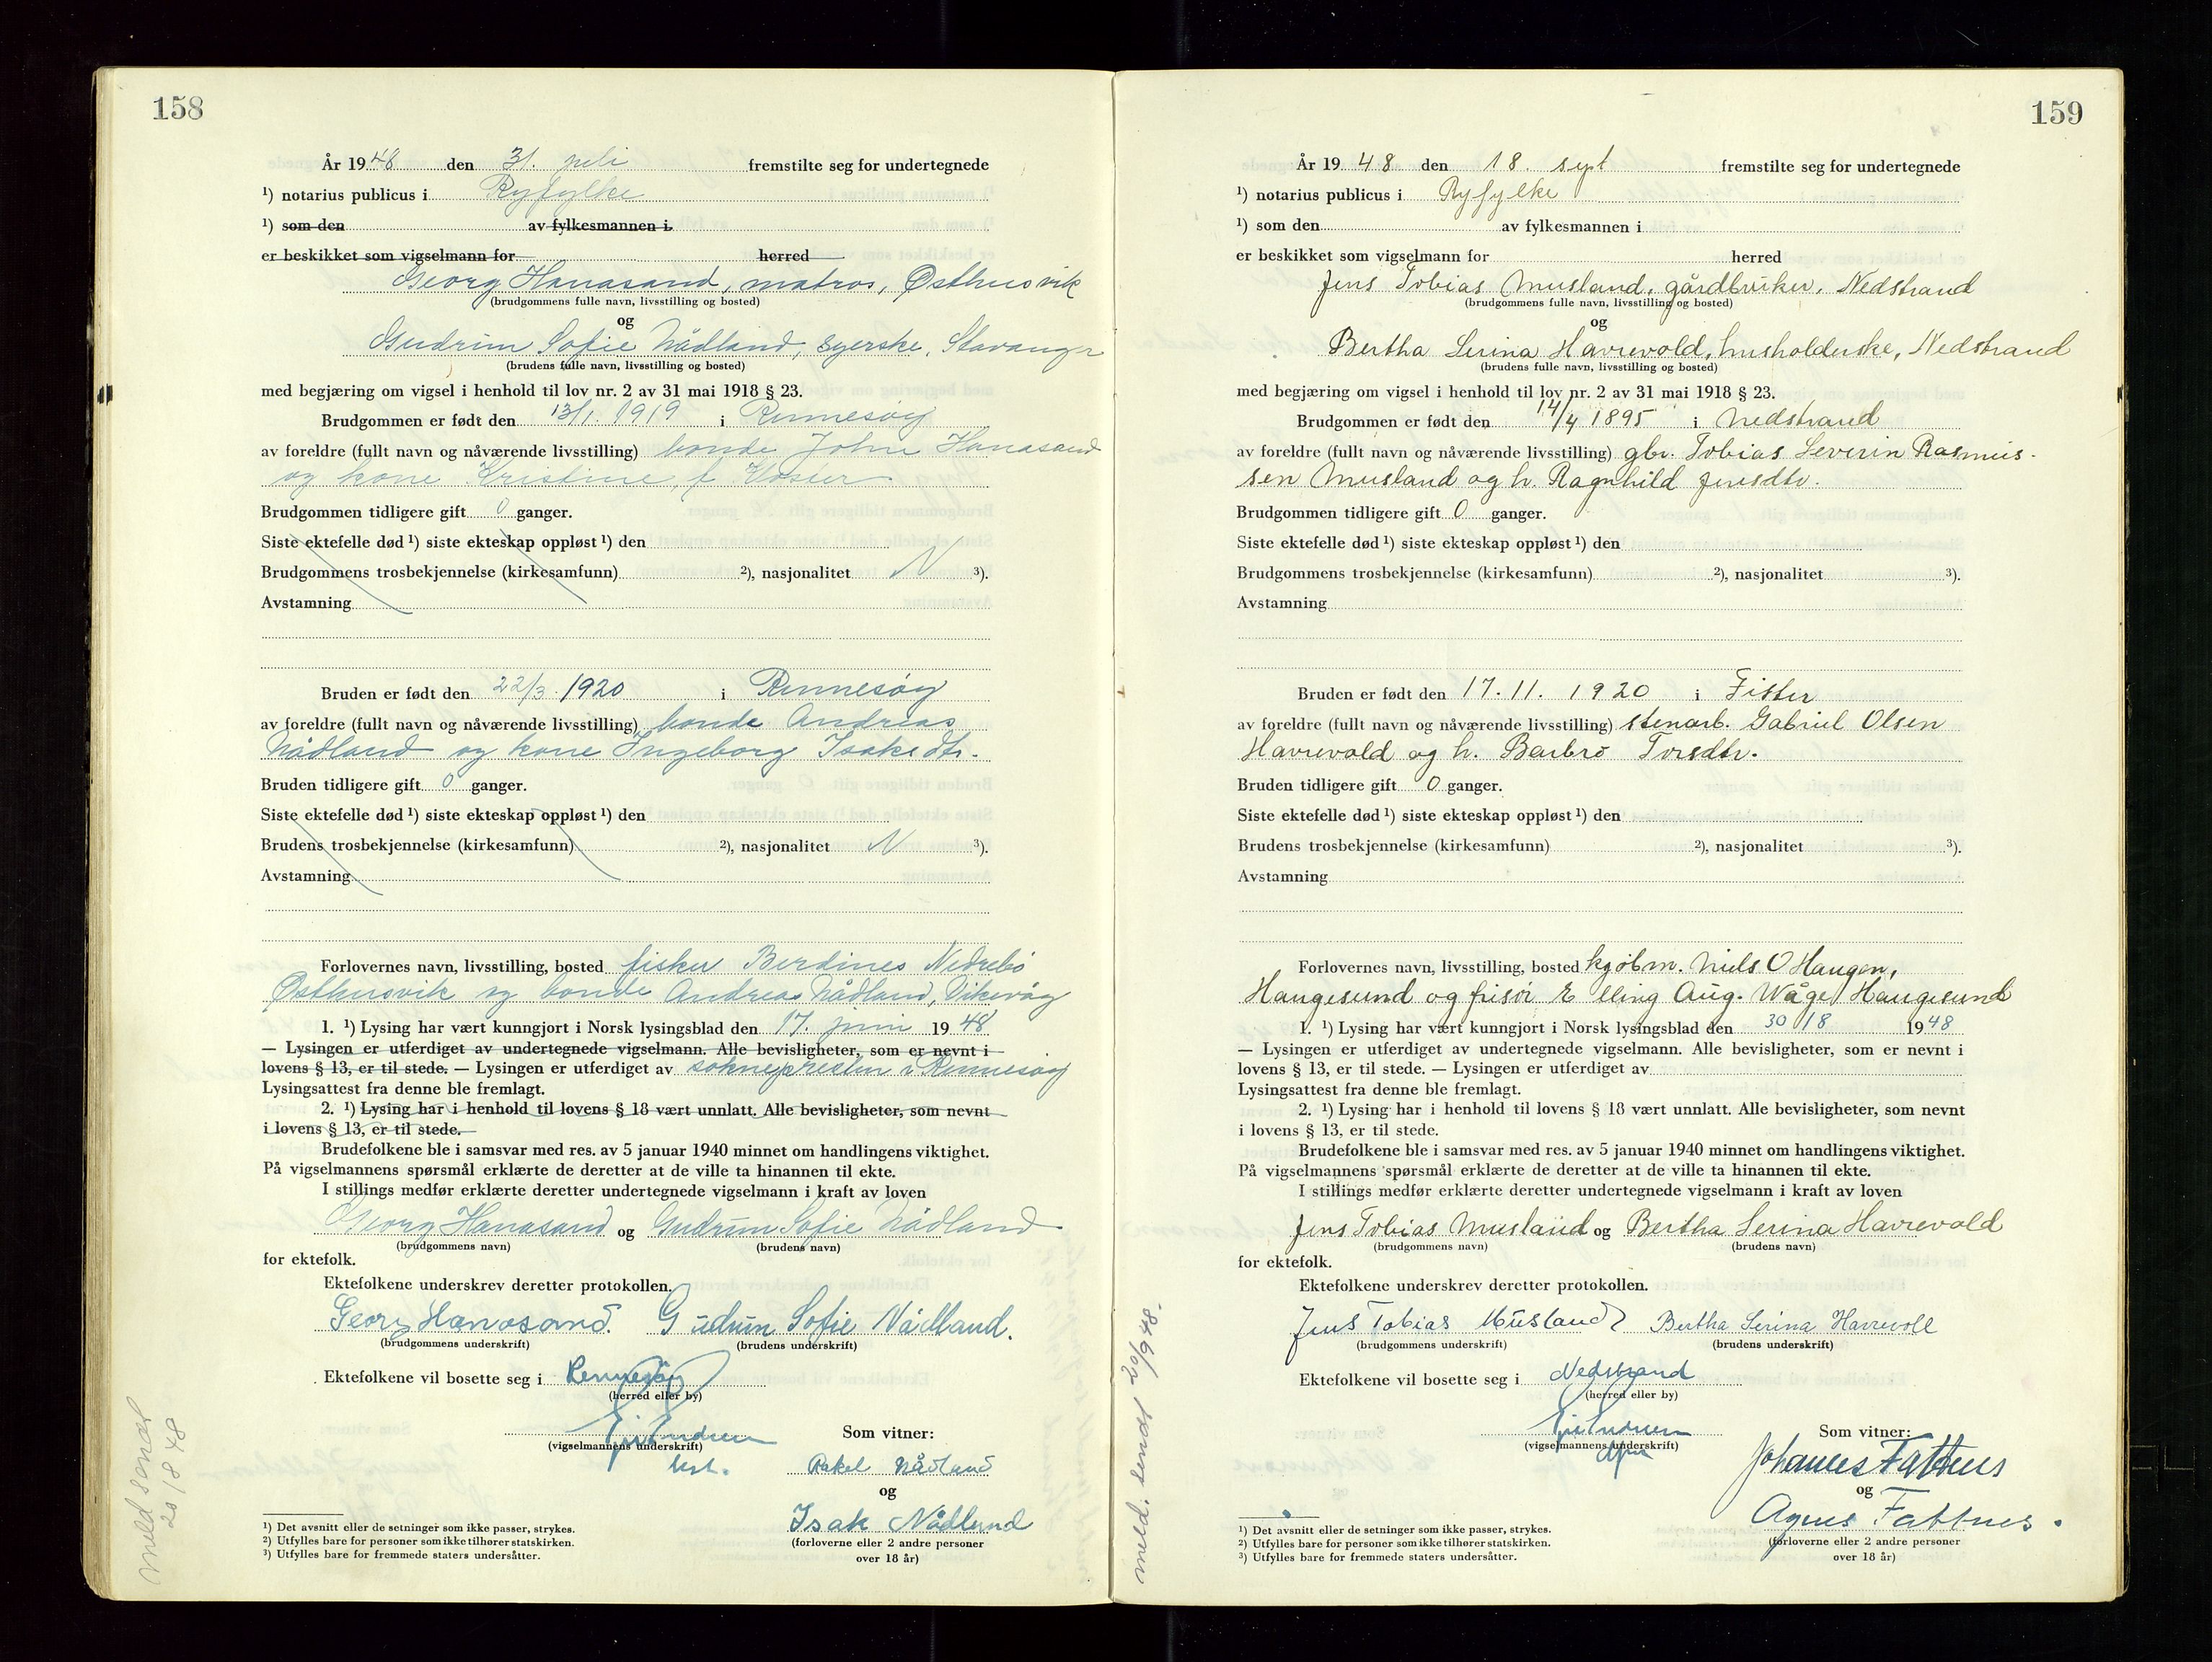 158
År 1948 den 31. juli fremstilte seg for undertegnede
¹) notarius publicus i Ryfylke
¹) som den av fylkesmannen i
er beskikket som vigselmann for herred
Georg Hanasand, matros, Østhusvik
(brudgommens fulle navn, livsstilling og bosted)
og
Gudrun Sofie Nådland, syerske, Stavanger
(brudens fulle navn, livsstilling og bosted)
med begjæring om vigsel i henhold til lov nr. 2 av 31 mai 1918 § 23.
Brudgommen er født den 13/1. 1919 i Rennesøy
av foreldre (fullt navn og nåværende livsstilling) bonde John Hanasand
og kone Kristine, f.
Brudgommen tidligere gift 0 ganger.
Siste ektefelle død ¹) siste ekteskap oppløst ¹) den
Brudgommens trosbekjennelse (kirkesamfunn) ²), nasjonalitet N ³).
Avstamning
Bruden er født den 22/3. 1920 i Rennesøy
av foreldre (fullt navn og nåværende livsstilling) bonde Andreas
Nådland og kone Ingeborg Isaksdtr.
Bruden tidligere gift 0 ganger.
Siste ektefelle død ¹) siste ekteskap oppløst ¹) den
Brudens trosbekjennelse (kirkesamfunn) ²), nasjonalitet N ³).
Avstamning
Forlovernes navn, livsstilling, bosted fisker Berdines Nedrebø
Østhusvik og bonde Andreas Nådland, Vikevåg
1. ¹) Lysing har vært kunngjort i Norsk lysingsblad den 17. juni 1948
— Lysingen er utferdiget av undertegnede vigselmann. Alle bevisligheter, som er nevnt i
lovens § 13, er til stede. — Lysingen er utferdiget av soknepresten i Rennesøy
Lysingsattest fra denne ble fremlagt.
2. ¹) Lysing har i henhold til lovens § 18 vært unnlatt. Alle bevisligheter, som nevnt
i lovens § 13, er til stede.
Brudefolkene ble i samsvar med res. av 5 januar 1940 minnet om handlingens viktighet.
På vigselmannens spørsmål erklærte de deretter at de ville ta hinannen til ekte.
I stillings medfør erklærte deretter undertegnede vigselmann i kraft av loven
Georg Hanasand og Gudrun Sofie Nådland
(brudgommens navn) (brudens navn)
for ektefolk.
Ektefolkene underskrev deretter protokollen.
Georg Hanasand. Gudrun Sofie Nådland.
(brudgommens underskrift) (brudens underskrift)
Ektefolkene vil bosette seg i Rennesøy
(herred eller by)
(vigselmannens underskrift)
Som vitner:
Rakel Nådland
og
Isak Nådland
(forloverne eller 2 andre personer
over 18 år)
¹) Det avsnitt eller de setninger som ikke passer, strykes.
²) Utfylles bare for personer som ikke tilhører statskirken.
³) Utfylles bare for fremmede staters undersåtter.
meld sendt
20/8 48
159
År 1948 den 18. sept fremstilte seg for undertegnede
¹) notarius publicus i Ryfylke
¹) som den av fylkesmannen i
er beskikket som vigselmann for herred
Jens Tobias Musland, gårdbruker, Nedstrand
(brudgommens fulle navn, livsstilling og bosted)
og
Bertha Serina Havrevold, husholderske, Nedstrand
(brudens fulle navn, livsstilling og bosted)
med begjæring om vigsel i henhold til lov nr. 2 av 31 mai 1918 § 23.
Brudgommen er født den 14/4 1895 i Nedstrand
av foreldre (fullt navn og nåværende livsstilling) gbr. Tobias Severin Rasmus-
sen Musland og h. Ragnhild Jensdtr.
Brudgommen tidligere gift 0 ganger.
Siste ektefelle død ¹) siste ekteskap oppløst ¹) den
Brudgommens trosbekjennelse (kirkesamfunn) ²), nasjonalitet ³).
Avstamning
Bruden er født den 17. 11. 1920 i Fister
av foreldre (fullt navn og nåværende livsstilling) stenarb. Gabriel Olsen
Havrevold og h. Barbro Torsdtr.
Bruden tidligere gift 0 ganger.
Siste ektefelle død ¹) siste ekteskap oppløst ¹) den
Brudens trosbekjennelse (kirkesamfunn) ²), nasjonalitet ³).
Avstamning
Forlovernes navn, livsstilling, bosted kjøbm. Niels O Haugen,
Haugesund og frisør Elling Aug. Wåge, Haugesund
1. ¹) Lysing har vært kunngjort i Norsk lysingsblad den 30/8 1948
— Lysingen er utferdiget av undertegnede vigselmann. Alle bevisligheter, som er nevnt i
lovens § 13, er til stede. — Lysingen er utferdiget av
Lysingsattest fra denne ble fremlagt.
2. ¹) Lysing har i henhold til lovens § 18 vært unnlatt. Alle bevisligheter, som nevnt
i lovens § 13, er til stede.
Brudefolkene ble i samsvar med res. av 5 januar 1940 minnet om handlingens viktighet.
På vigselmannens spørsmål erklærte de deretter at de ville ta hinannen til ekte.
I stillings medfør erklærte deretter undertegnede vigselmann i kraft av loven
Jens Tobias Musland og Bertha Serina Havrevold
(brudgommens navn) (brudens navn)
for ektefolk.
Ektefolkene underskrev deretter protokollen.
Jens Tobias Musland Bertha Serina Havrevoll
(brudgommens underskrift) (brudens underskrift)
Ektefolkene vil bosette seg i Nedstrand
(herred eller by)
(vigselmannens underskrift)
Som vitner:
Johannes Fattnes
og
Agnes Fattnes.
(forloverne eller 2 andre personer
over 18 år)
¹) Det avsnitt eller de setninger som ikke passer, strykes.
²) Utfylles bare for personer som ikke tilhører statskirken.
³) Utfylles bare for fremmede staters undersåtter.
meld. sendt 20/9 48.